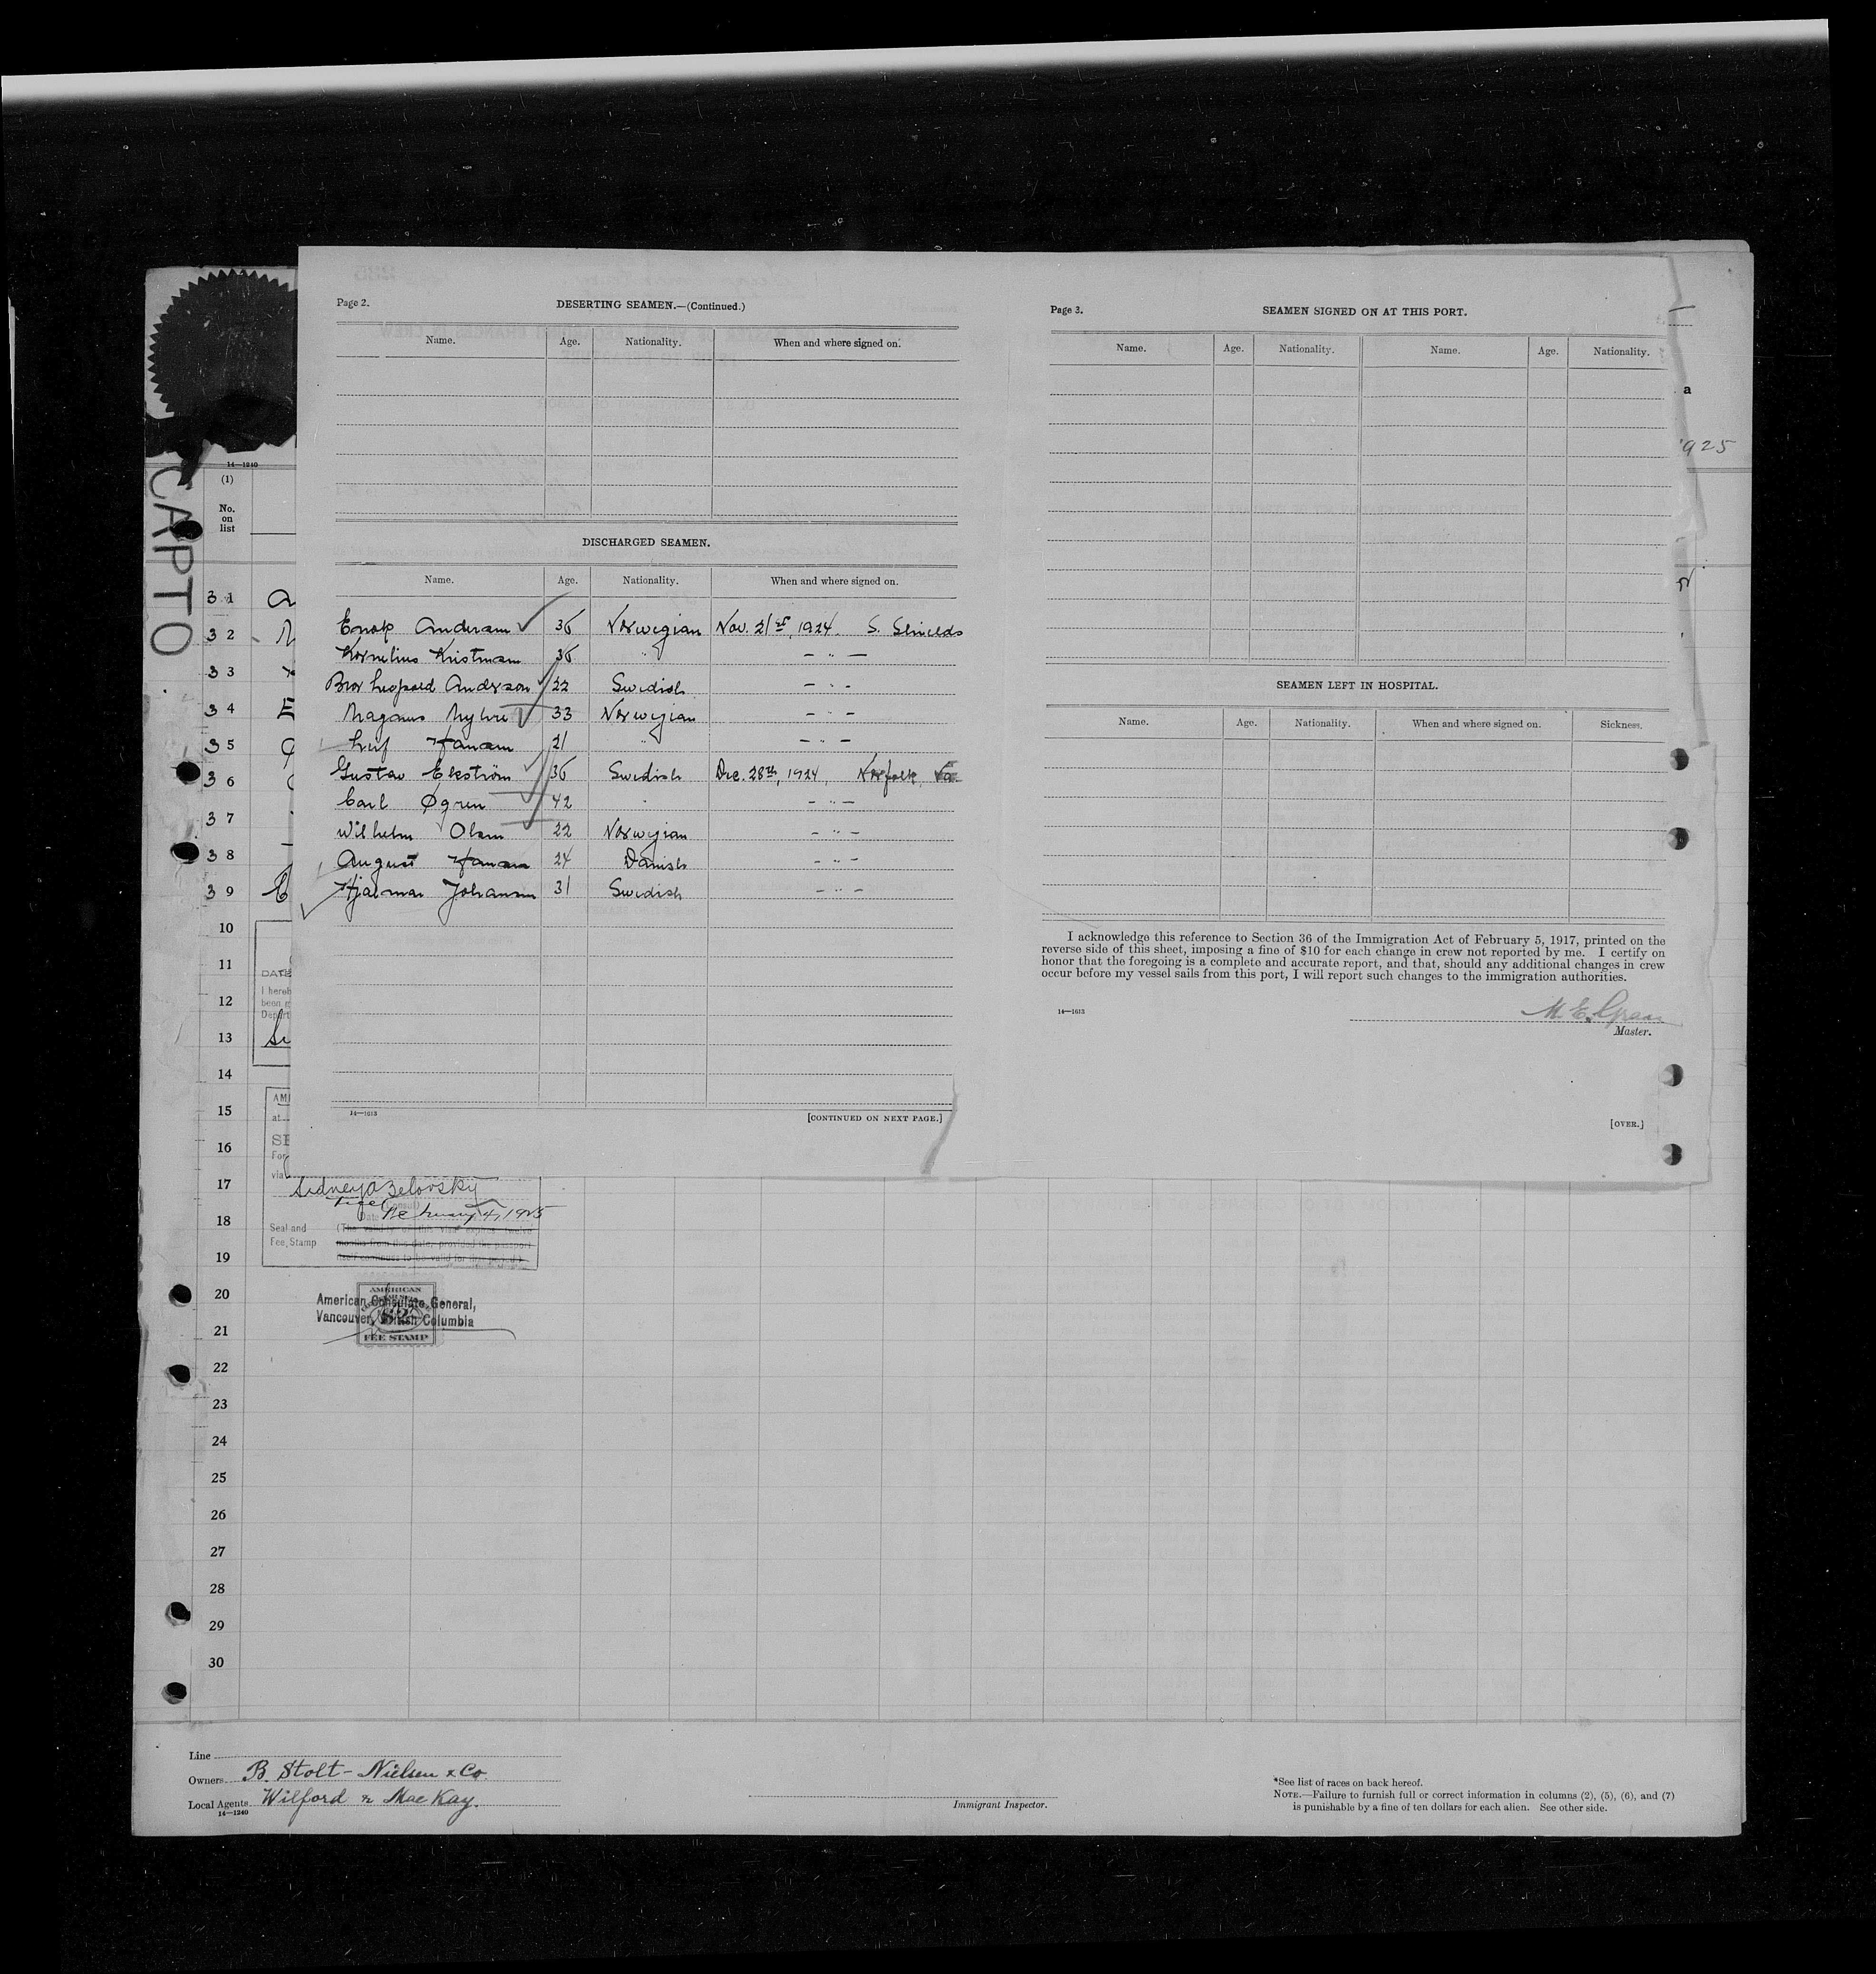 Page 2.
DESERTING SEAMEN.—(Continued.)
Name. Age. Nationality. When and where signed on.
DISCHARGED SEAMEN.
Name. Age. Nationality. When and where signed on.
Enok Andersen 36 Norwegian Nov. 21st, 1924. S. Shields
Kornelius Kristensen 36 " — " —
Bror Leopold Anderson 22 Swedish — " —
Magnus Myhre 33 Norwegian — " —
Leif Hansen 21 " — " —
Gustav Ekström 36 Swedish Dec. 28th, 1924, Norfolk Va.
Carl Øgren 42 " — " —
Wilhelm Olsen 22 Norwegian — " —
August Hansen 24 Danish — " —
Hjalmar Johansen 31 Swedish — " —
14—1613
[CONTINUED ON NEXT PAGE.]
Page 3.
SEAMEN SIGNED ON AT THIS PORT.
Name. Age. Nationality. Name. Age. Nationality.
SEAMEN LEFT IN HOSPITAL.
Name. Age. Nationality. When and where signed on. Sickness.
I acknowledge this reference to Section 36 of the Immigration Act of February 5, 1917, printed on the
reverse side of this sheet, imposing a fine of $10 for each change in crew not reported by me. I certify on
honor that the foregoing is a complete and accurate report, and that, should any additional changes in crew
occur before my vessel sails from this port, I will report such changes to the immigration authorities.
14—1613
Master.
[OVER.]
CAPTO
14—1240
(1)
No.
on
list
31
32
33
34
35
36
37
38
39
10
11
12
13
14
15
16
17
18
19
20
21
22
23
24
25
26
27
28
29
30
a
925
DATE
I hereb
been
Depart
AM
at
SE
For
via
February 4, 1925
Seal and (The validity of this visa expires twelve
Fee Stamp months from this date, provided the passport
itself continues to be valid for that period.)
AMERICAN
American Consulate General,
Vancouver, British Columbia
$2
FEE STAMP
Line
Owners B. Stolt-Nielsen & Co.
Local Agents Wilford & MacKay.
14—1240
Immigrant Inspector.
*See list of races on back hereof.
NOTE.—Failure to furnish full or correct information in columns (2), (5), (6), and (7)
is punishable by a fine of ten dollars for each alien. See other side.